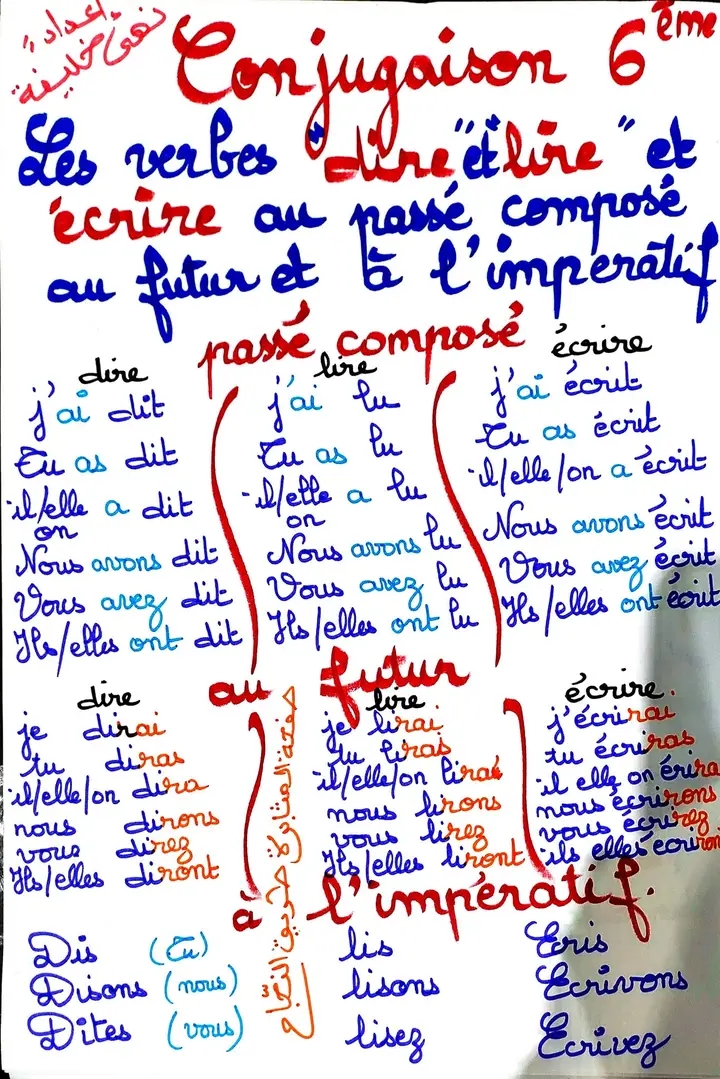 إعداد:
نهى خليفة
Conjugaison 6ème
Les verbes "dire" et "lire" et
écrire au passé composé
au futur et à l'imperatif
passé composé
dire
j'ai dit
Tu as dit
il/elle a dit
on
Nous avons dit
Vous avez dit
Ils/elles ont dit
lire
j'ai lu
Tu as lu
il/elle a lu
on
Nous avons lu
Vous avez lu
Ils/elles ont lu
écrire
j'ai écrit
Tu as écrit
il/elle/on a écrit
Nous avons écrit
Vous avez écrit
Ils/elles ont écrit
au futur
dire
je dirai
tu diras
il/elle/on dira
nous dirons
vous direz
Ils/elles diront
صفحة المثابرة طريق النجاح
lire
je lirai
tu liras
il/elle/on lira
nous lirons
vous lirez
Ils/elles liront
écrire.
j'écrirai
tu écriras
il elle on érira
nous écrirons
vous écrirez
ils elles écriron
à l'impératif.
Dis (Tu)
Disons (nous)
Dites (vous)
lis
lisons
lisez
Ecris
Ecrivons
Ecrivez